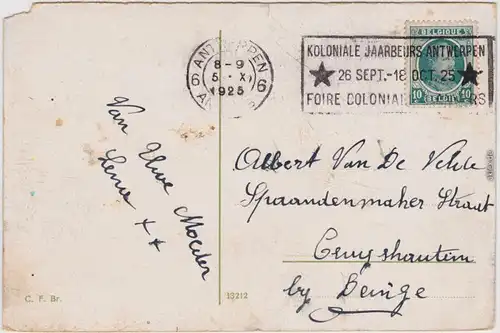 ANTWERPEN
8-9
6 5 X 6
1925
KOLONIALE JAARBEURS ANTWERPEN
26 SEPT.-18 OCT. 25
FOIRE COLONIAL
BELGIQUE
10 BELGIË 10
Van Uwe Moeder
Albert Van De Velde
Spaandenmaher Straat
by
C. F. Br.
13212